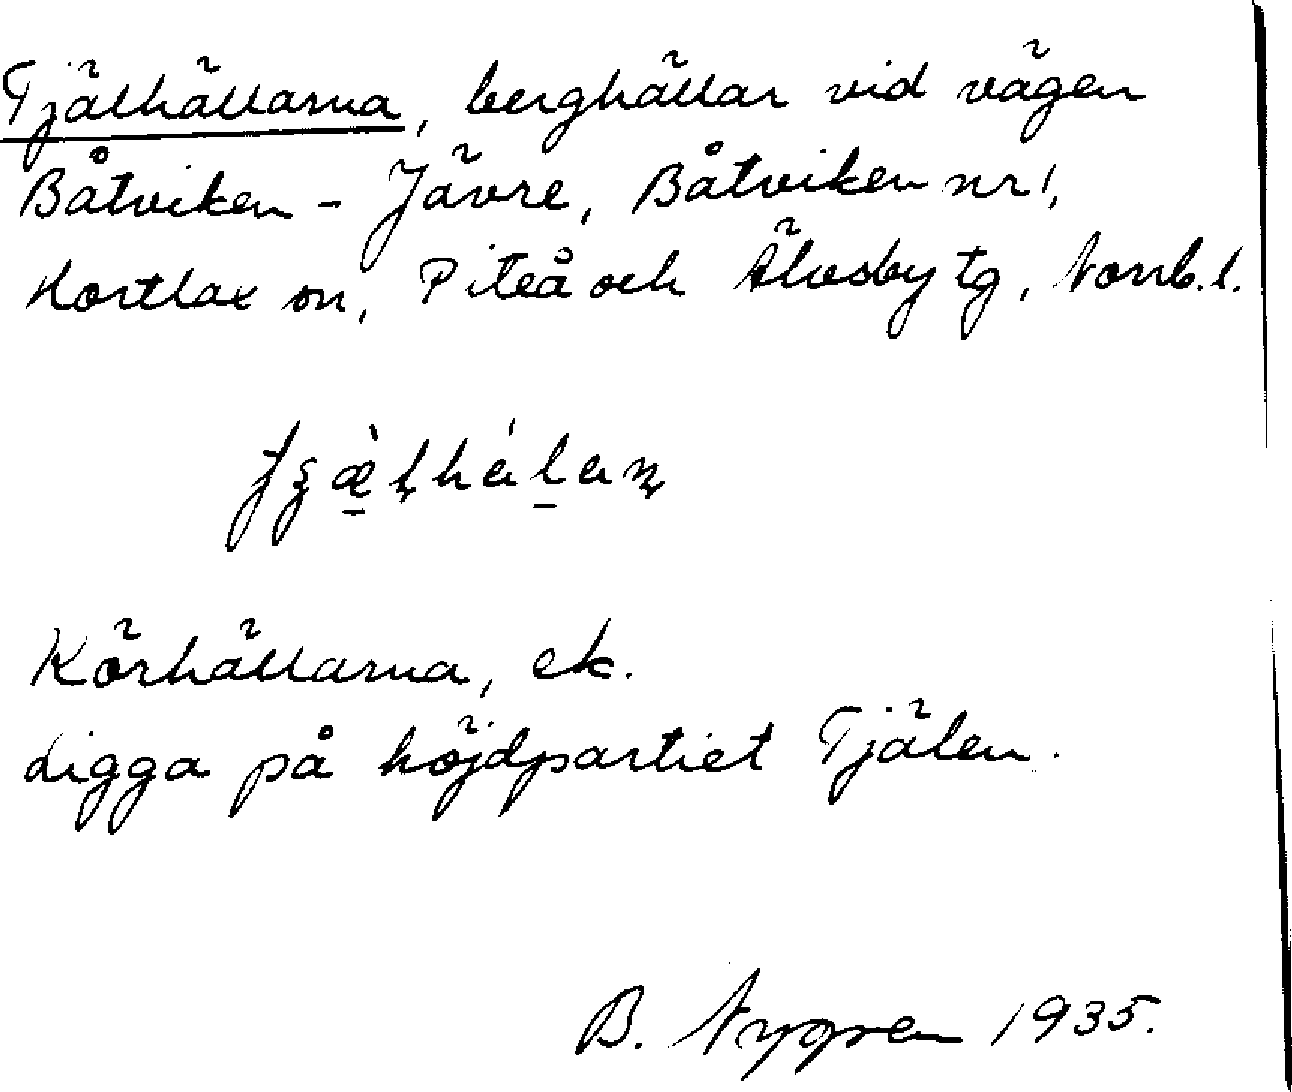 Tjälhällarna, berghällar vid vägen
Båtviken - Jävre, Båtviken nr 1,
Hortlax sn, Piteå och Älvsby tg, Norrb. l.
Körhällarna, ek.
Ligga på höjdpartiet Tjälen.
B. Nygren 1935.